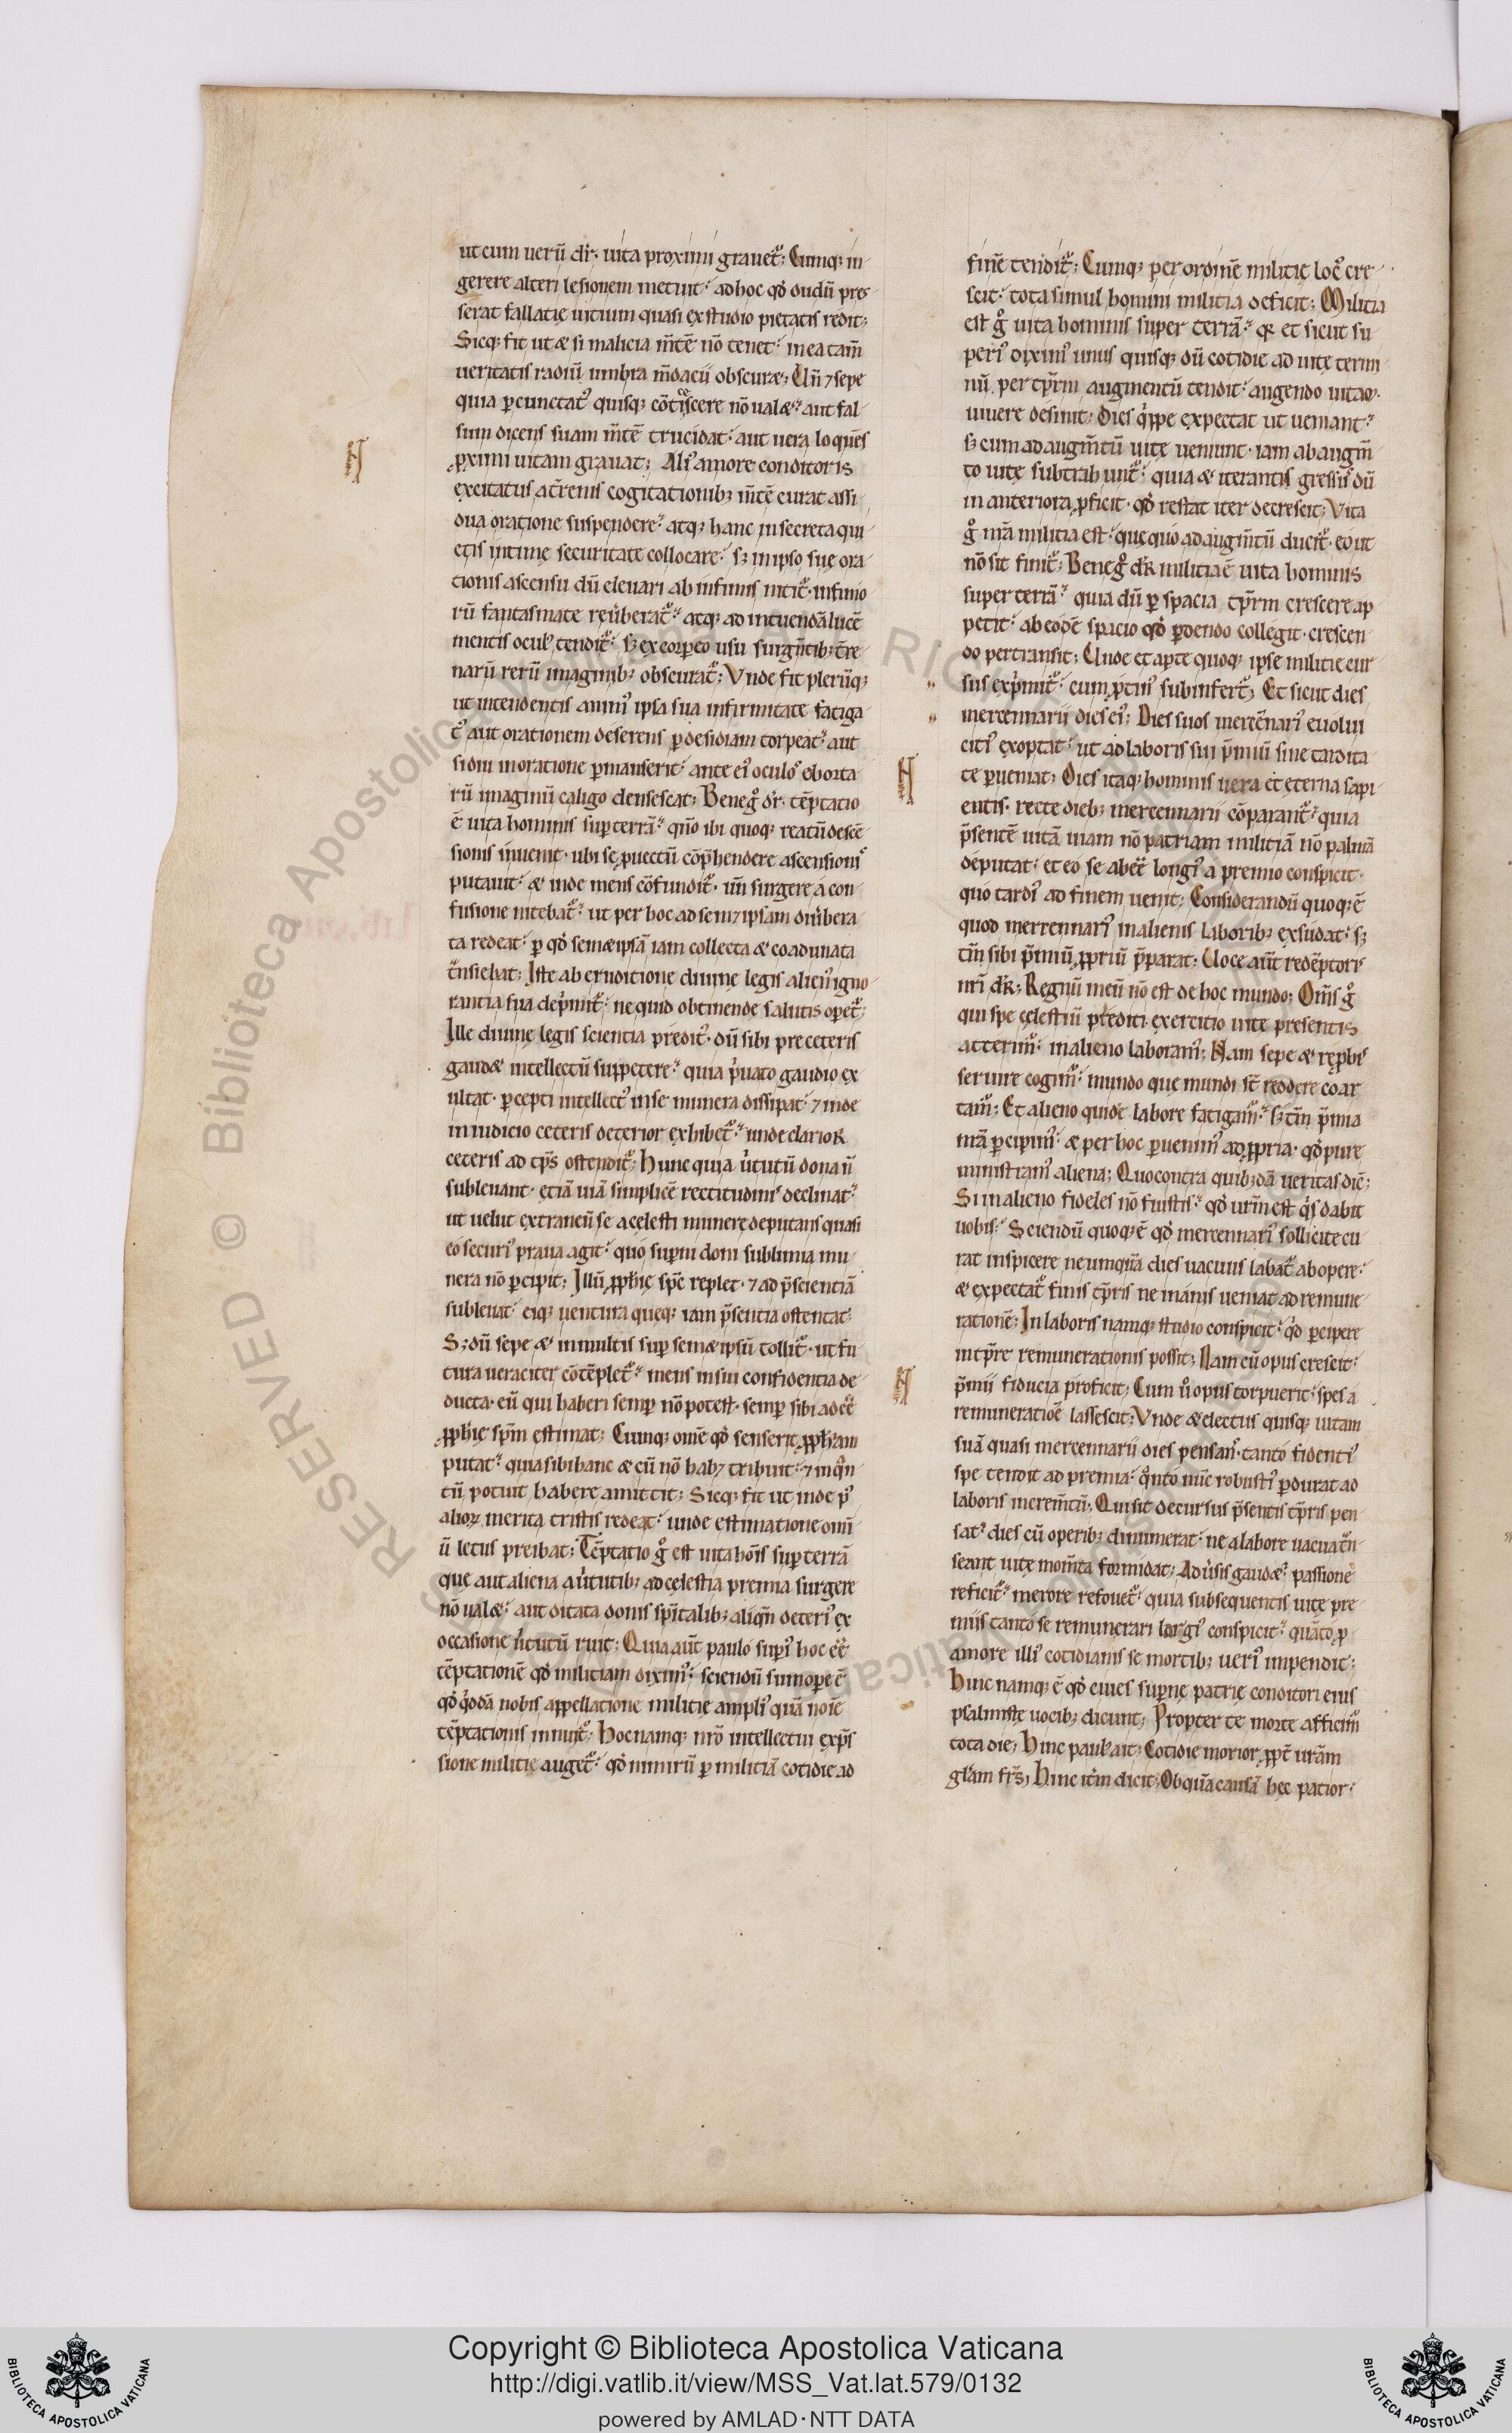 ut cum uerū dr̄· uita proximi grauet᷑; Cumq; in
gerere alteri lesionem metuit· ad hoc qd̄ dudū pres
serat fallacię uitium quasi ex studio pietatis redit;
Sicq; fit ut & si malicia m̄tē nō tenet· in ea tam̄
ueritatis radiū umbra m̄dacii obscur&; Un̄ ⁊ sepe
quia ꝑcunctat᷒ quisq; cōticescere nō ual&· aut fal
sum dicens suam m̄tē trucidat· aut uera loquēs
ꝓximi uitam grauat; Ali᷒ amore conditoris
excitatus a t̄renis cogitationib; m̄tē curat assi
dua oratione suspendere· atq; hanc in secreta qui
etis intimę securitate collocare· s; in ipso suę ora
tionis ascensu dū eleuari ab infimis nitit᷑· infimo
rū fantasmate reuerberat᷑· atq; ad intuendā lucē
mentis ocul᷒ tendit᷑· s; ex corꝑeo usu surgn̄tib; t̄re
narū rerū imaginib; obscurat᷑; Vnde fit plerūq;
ut intendentis anim᷒ ipsa sua infirmitate fatiga
t᷒ aut orationem deserens ꝑ desidiam torpeat· aut
si diu in oratione ꝑmanserit· ante ei᷒ oculos oborta
rū imaginū caligo densescat; Bene gͦ dr̄· tēptatio
ē uita hominis sup terrā· qm̄o ibi quoq; reatū descē
sionis inuenit· ubi se ꝓuectū cōp̄hendere ascensionis
putauit· & inde mens cōfundit᷑· un̄ surgere a con
fusione nitebat᷑· ut per hoc ad sem⁊ipsam diuerbera
ta redeat· ꝑ qd̄ sem&ipsā iam collecta & coadunata
t̄nsiebat; Iste ab eruditione diuine legis alien᷒ igno
rantia sua dep̄mit᷑· ne quid obtinende salutis oꝑet᷑;
Ille diuinę legis scientia predit᷒· dū sibi pre ceteris
gaud& intellectū suppetere· quia p̄uato gaudio ex
ultat· ꝑcepti intellect᷒ in se munera dissipat· ⁊ inde
in iudicio ceteris deterior exhibet᷑· unde clarior
ceteris ad tp̄s ostendit᷑; Hunc quia uirtutū dona ñ
subleuant· etiā uiā simplicē rectitudinis declinat·
ut uelut extraneū se a celesti munere deputans quasi
eo securi᷒ praua agit· quo suꝑni doni sublimia mu
nera nō ꝑcipit; Illū ꝓph̄ię sp̄c replet· ⁊ ad p̄scientiā
subleuat· eiq; uentura queq; iam p̄sentia ostentat·
S; dū sepe & in multis sup sem&ipsū tollit᷑· ut fu
tura ueraciter cōtēplet᷑· mens in sui confidentia de
ducta· eū qui haberi semꝑ nō potest· semꝑ sibi adēē
ꝓph̄ię sp̄m estimat; Cumq; omē qd̄ senserit ꝓph̄iam
putat· quia sibi hanc & cū nō hab⁊ tribuit· ⁊ in qn̄
tū potuit habere amittit; Sicq; fit ut inde p᷒
alioꝝ merita tristis redeat· unde estimatione omī
ū letus preibat; Tēptatio gͦ est uita hōis sup terrā
que aut aliena a uirtutib; ad celestia premia surgere
nō ual&· aut ditata donis sp̄italib; aliqn̄ deteri᷒ ex
occasione uirtutū ruit; Quia aut̄ paulo supi᷒ hoc ēē
tēptationē qd̄ militiam dixim᷒· sciendū sumoꝑe ē
qd̄ q̄dā nobis appellatione militię ampli᷒ quā noīe
tēptationis innuit᷑; Hoc namq; nr̄o intellectui exp̄s
sione militie auget᷑· qd̄ nimirū ꝑ militiā cotidie ad
finē tendit᷑; Cumq; per ordinē militię loc᷒ cre
scit· tota simul homini militia deficit; Militia
est gͦ uita hominis super terrā· q̄ et sicut su
peri᷒ dixim᷒ unus quisq; dū cotidie ad uitę termi
nū per tp̄rm augmentū tendit· augendo uitā
uiuere desinit; Dies q̄ppe expectat ut ueniant·
s; cum ad augm̄tū uitę ueniunt· iam ab augm̄
to uitę subtrahunt᷑· quia & iterantis gressus dū
in anteriora ꝓficit· qd̄ restat iter decrescit; Vita
gͦ nr̄a militia est· que quo ad augm̄tū ducit᷑· eo ut
nō sit finit᷑; Bene gͦ dr̄ militia ē uita hominis
super terrā· quia dū ꝑ spacia tp̄rm crescere ap
petit· ab eodē spacio qd̄ ꝑdendo collegit· crescen
do pertransit; Unde et apte quoq; ipse militie cur
sus exp̄mit᷑· cum ꝓtin᷒ subinfert᷑; Et sicut dies
mercennarii dies ei᷒; Dies suos mercēnari᷒ euolui
citi᷒ exoptat· ut ad laboris sui p̄miū sine tardita
te ꝑueniat; Dies itaq; hominis uera et eterna sapi
entis· recte dieb; mercennarii cōparant᷑· quia
p̄sentē uitā uiam nō patriam militiā nō palmā
deputat· et eo se abēē longi᷒ a premio conspicit·
quo tardi᷒ ad finem uenit; Considerandū quoq; ē
quod mercennari᷒ in alienis laborib; exsudat· s;
tam̄ sibi p̄miū ꝓpriū p̄parat; Uoce aut̄ redēptoris
nr̄i dr̄; Regnū meū nō est de hoc mundo; Om̄s gͦ
qui spe celestiū prediti exercitio uite presentis
atterim᷒· in alieno laboram᷒; Nam sepe & rēꝓbis
seruire cogim᷒· mundo que mundi st̄ reddere coar
tam᷒; Et alieno quidē labore fatigam᷒· s; tam̄ p̄mia
nr̄a ꝑcipim᷒· & per hoc ꝑuenim᷒ ad ꝓpria· qd̄ pure
ministram᷒ aliena; Quo contra quib; dā ueritas dic̄;
Si in alieno fideles nō fuistis· qd̄ ur̄m est q̄s dabit
uobis· Sciendū quoq; ē qd̄ mercennari᷒ sollicite cu
rat inspicere ne umquā dies uacuus labat᷑ ab opere·
& expectat᷒ finis tp̄ris ne inanis ueniat ad remune
rationē; In laboris namq; studio conspicit· qd̄ ꝑcipere
in tp̄re remunerationis possit; Nam cū opus crescit·
p̄mii fiducia proficit; Cum ū opus torpuerit· spes a
remuneratiōe lassescit; Vnde & electus quisq; uitam
suā quasi mercennarii dies pensans· tanto fidenti᷒
spe tendit ad premia· q̄nto nūc robusti᷒ ꝑdurat ad
laboris increm̄tū; Qui sit decursus p̄sentis tp̄ris pen
sat· dies cū operib; dinumerat· ne a labore uacua t̄n
seant uitę mom̄ta formidat; Aduersis gaud&· passione
reficit᷑· merore refouet᷑· quia subsequentis uitę pre
miis tanto se remunerari largi᷒ conspicit· quāto ꝓ
amore illi᷒ cotidianis se mortib; ueri᷒ impendit;
Hinc namq; ē qd̄ ciues suꝑnę patrię conditori eius
psalmistę uocib; dicunt; Propter te morte afficim᷒
tota die; Hinc paul᷒ ait; Cotidie morior ꝓpt̄ uram
gl̄am fr̄s; Hinc itm̄ dicit; Ob quā causā hęc patior·
Copyright © Biblioteca Apostolica Vaticana
http://digi.vatlib.it/view/MSS_Vat.lat.579/0132
powered by AMLAD·NTT DATA
BIBLIOTECA APOSTOLICA VATICANA
BIBLIOTECA APOSTOLICA VATICANA